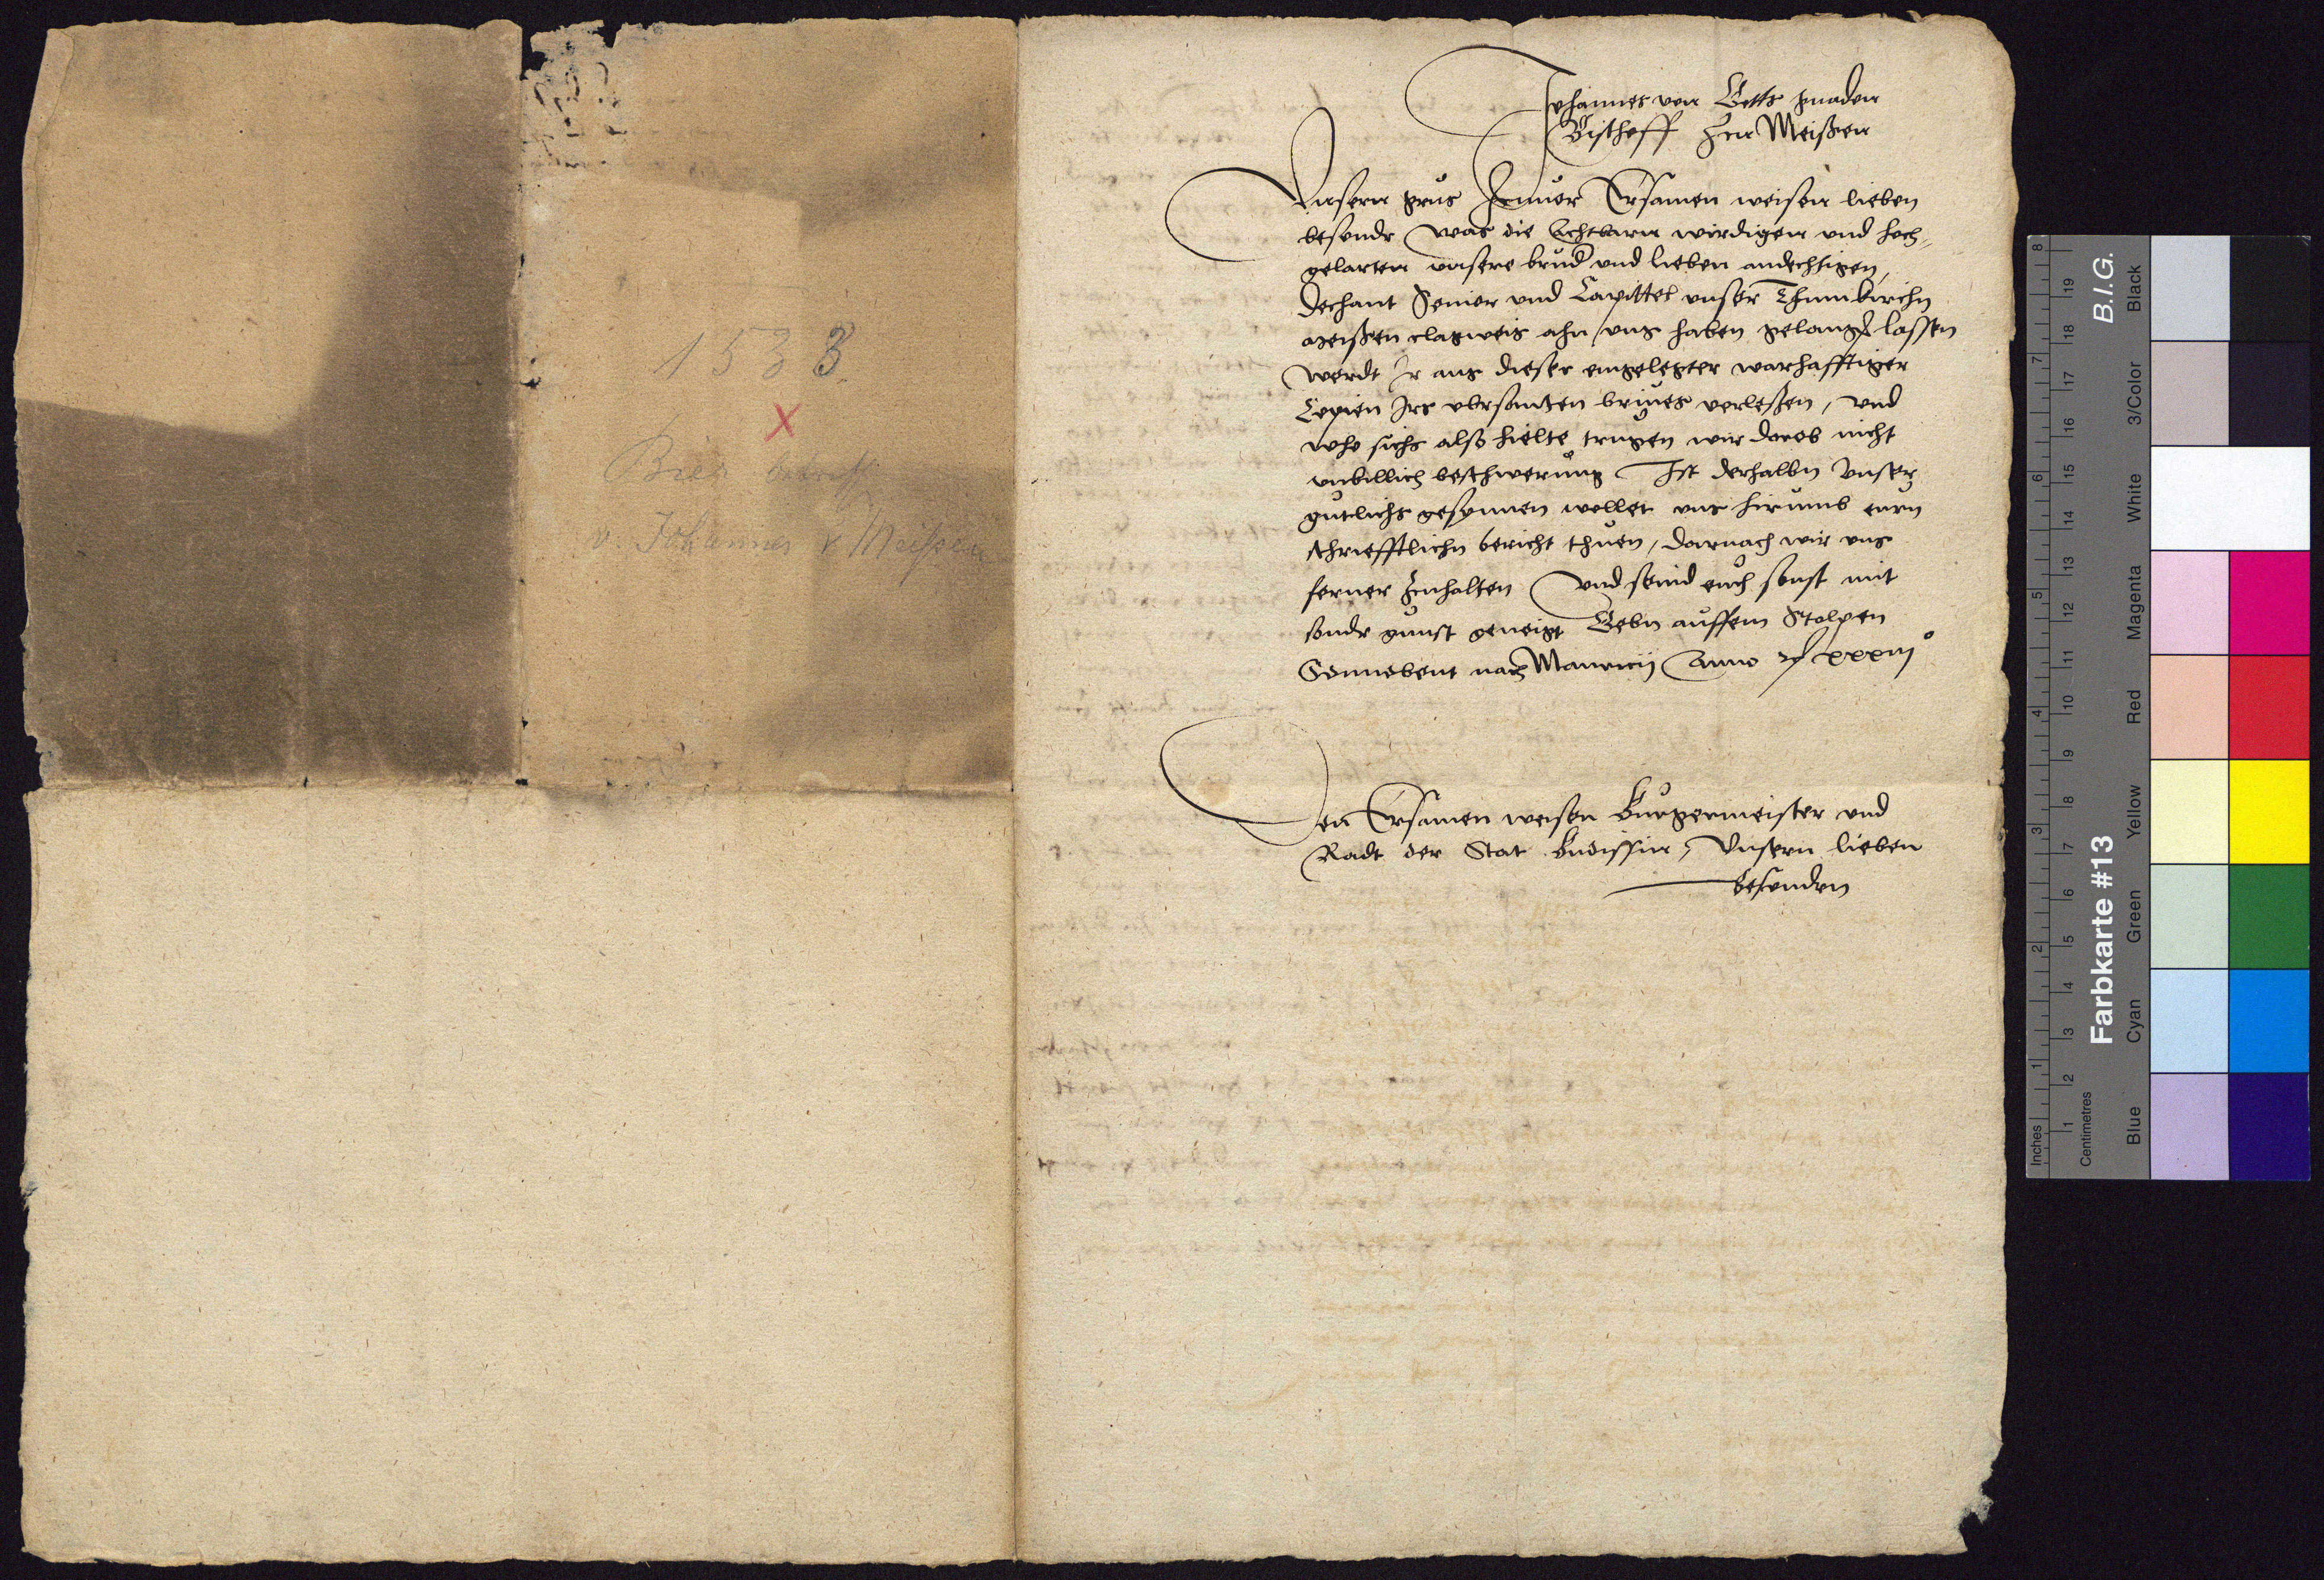 1533
X
Bier betreff
v. Johannes v Meissen
Johannes von Gotts gnaden
Bischoff zcu Meißen
Vnsern grus zcuuor Ersamen weisen lieben
besondr Was die Achtbarn wirdigen vnd hoch,
gelarten vnsere brud vnd lieben andechtigen,
Dechant Senior vnd Capittel vnser Thumkirchn
Meißen clagweis ahn vns haben gelangen lassen
Werdt Ir aus dieser eingelegter warhafftiger
Copien Irs vbrsanten briues vorleßen, vnd
who sichs also hielte trugen wir dorob nicht
vnbillich beschwerung Ist derhalbn Vnser
gutlichs gesynnen wollet vns hirumb eurn
schriefftlichn bericht thuen, darnach wir vns
ferner zcuhalten Vnd seind euch sonst mit
sondr gunst geneigt Gebn auffem Stolpen
Sonnobent nach Mauricij Anno xxxiij
Den Ersamen weisen Burgermeister vnd
Radt der Stat Budissin, Vnsern lieben
besondrn
Inches
Centimetres
Farbkarte #13
B.I.G.
Blue
Cyan
Green
Yellow
Red
Magenta
White
3/Color
Black